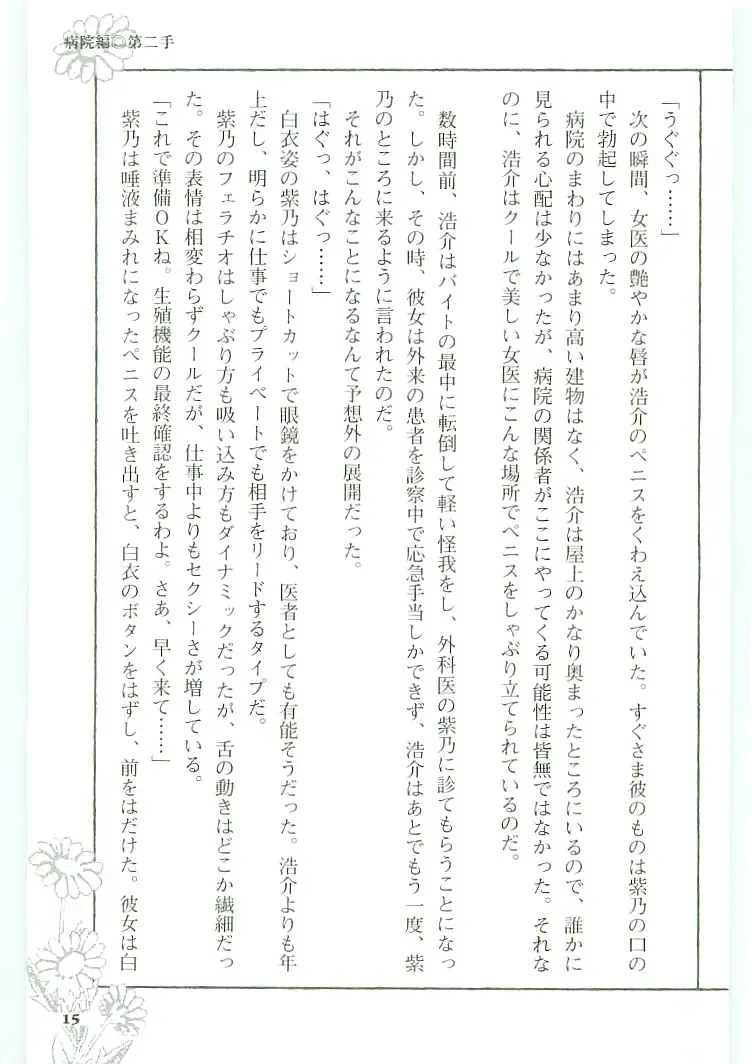 病院編◎第二手
「うぐぐっ……」
次の瞬間、女医の艶やかな唇が浩介のペニスをくわえ込んでいた。すぐさま彼のものは紫乃の口の
中で勃起してしまった。
病院のまわりにはあまり高い建物はなく、浩介は屋上のかなり奥まったところにいるので、誰かに
見られる心配は少なかったが、病院の関係者がここにやってくる可能性は皆無ではなかった。それな
のに、浩介はクールで美しい女医にこんな場所でペニスをしゃぶり立てられているのだ。
数時間前、浩介はバイトの最中に転倒して軽い怪我をし、外科医の紫乃に診てもらうことになっ
た。しかし、その時、彼女は外来の患者を診察中で応急手当しかできず、浩介はあとでもう一度、紫
乃のところに来るように言われたのだ。
それがこんなことになるなんて予想外の展開だった。
「はぐっ、はぐっ……」
白衣姿の紫乃はショートカットで眼鏡をかけており、医者としても有能そうだった。浩介よりも年
上だし、明らかに仕事でもプライベートでも相手をリードするタイプだ。
紫乃のフェラチオはしゃぶり方も吸い込み方もダイナミックだったが、舌の動きはどこか繊細だっ
た。その表情は相変わらずクールだが、仕事中よりもセクシーさが増している。
「これで準備OKね。生殖機能の最終確認をするわよ。さあ、早く来て……」
紫乃は唾液まみれになったペニスを吐き出すと、白衣のボタンをはずし、前をはだけた。彼女は白
15